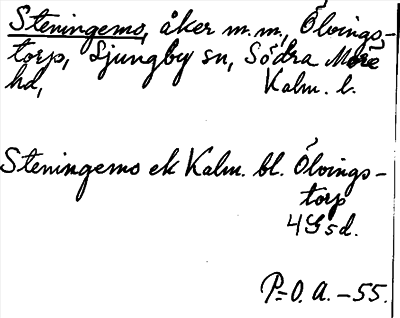 Steningemo, åker m.m., Ölvings-
torp, Ljungby sn, Södra Möre
hd, Kalm. l.
Steningemo ek Kalm. bl. Ölvings-
torp
4G5d.
P=O. A. -55.